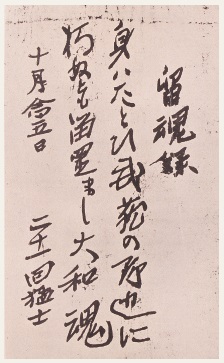 留魂録
身ハたとひ武蔵の野辺に
朽ぬとも留置まし大和魂
十月念五日
二十一回猛士